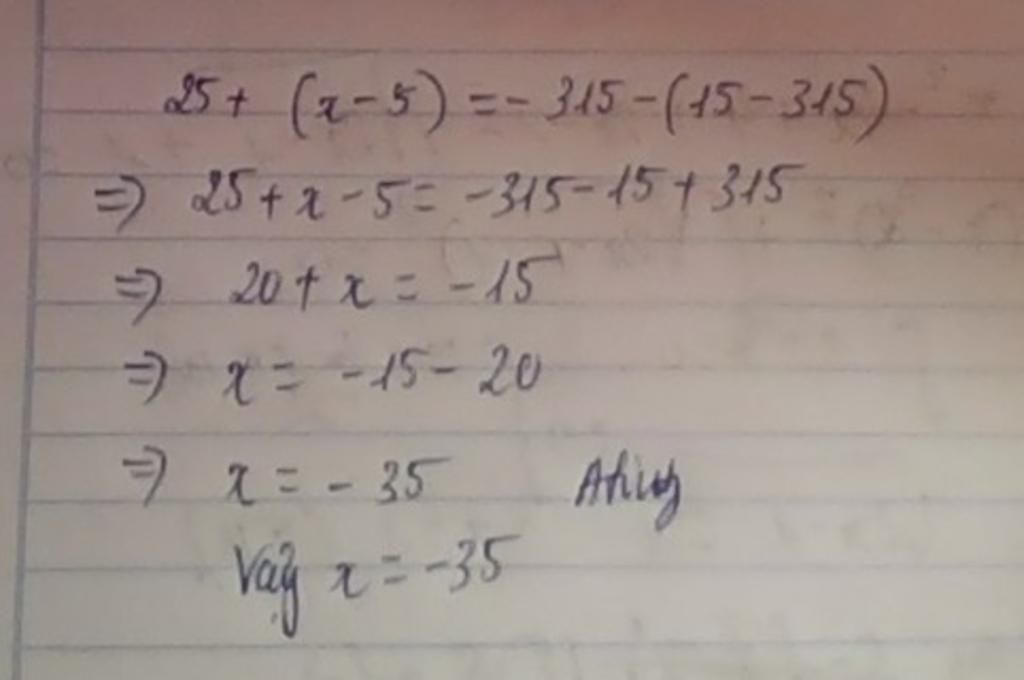 25 + (x - 5) = - 315 - (15 - 315)
=> 25 + x - 5 = -315 - 15 + 315
=> 20 + x = -15
=> x = -15 - 20
=> x = - 35
Vậy x = -35